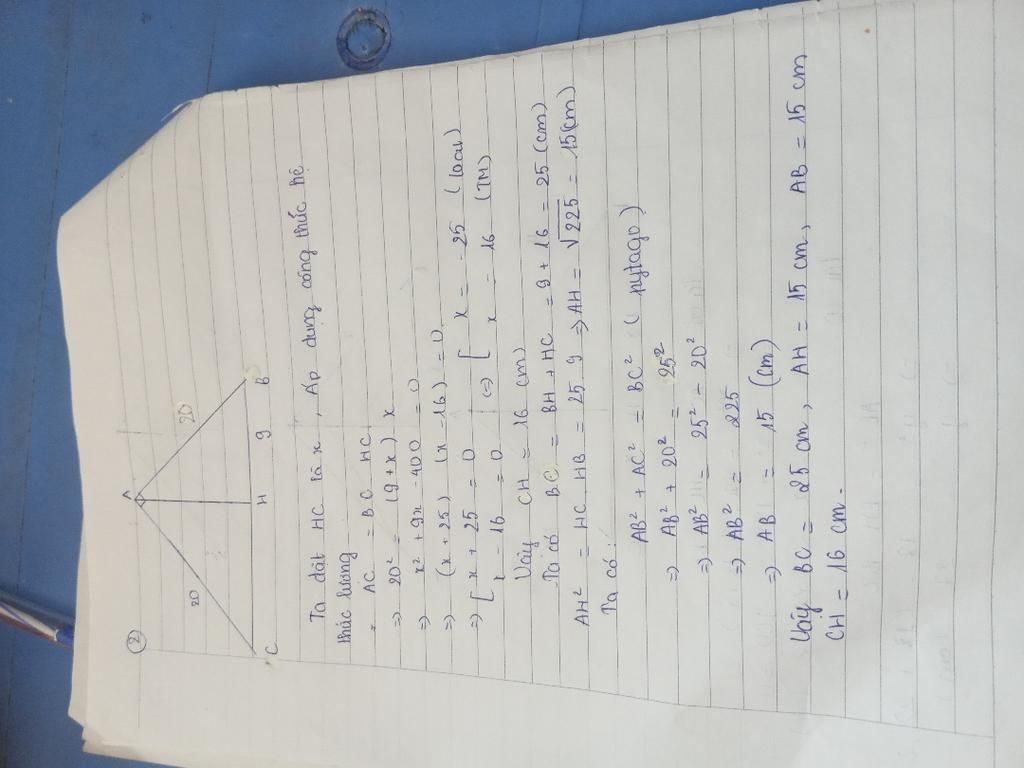 ②
A
20
20
C
H
9
B
Ta đặt HC là x, Áp dụng công thức hệ
thức lượng
AC = BC HC
=> 20² = (9+x) x
=> x² + 9x - 400 = 0
=> (x + 25) (x - 16) = 0
=> [ x + 25 = 0 (=> [ x = - 25 (loại)
x - 16 = 0 x = 16 (TM)
Vậy CH = 16 cm)
Ta có BC = BH + HC = 9 + 16 = 25 (cm)
AH² = HC. HB = 25. 9 => AH = √225 = 15(cm)
Ta có:
AB² + AC² = BC² ( pytago)
=> AB² + 20² = 25²
=> AB² = 25² - 20²
=> AB² = 225
=> AB = 15 (cm)
Vậy BC = 25 cm, AH = 15 cm, AB = 15 cm
CH = 16 cm.